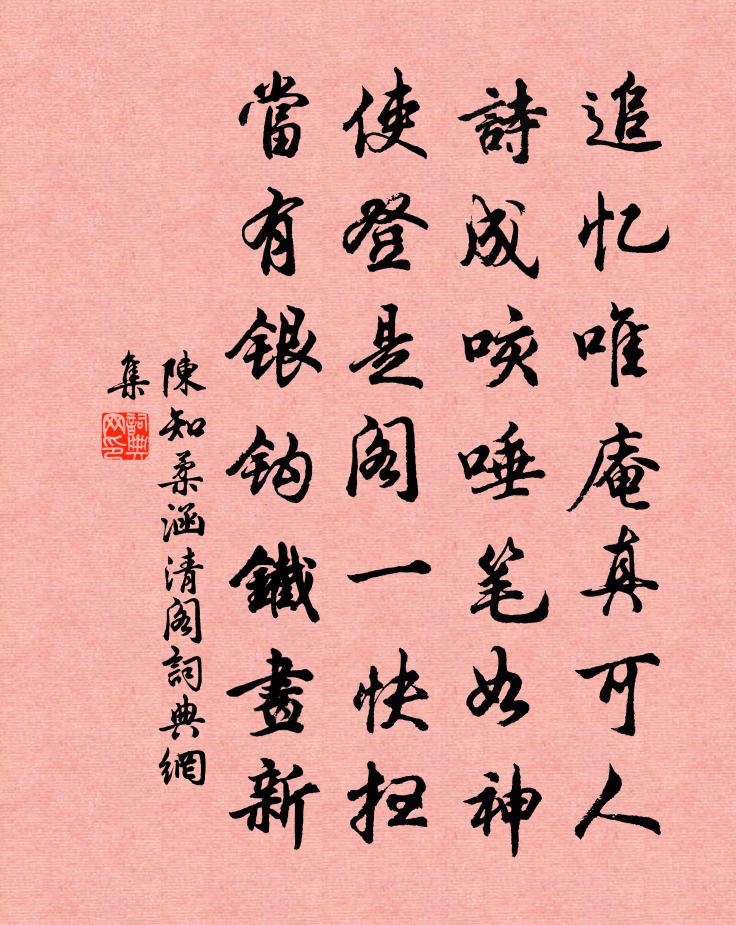 追忆唯庵真可人
詩成咳唾笔如神
使登是阁一快扫
當有銀鈎鐵畫新
陳知柔涵清阁詞典網
集
詞典
网印